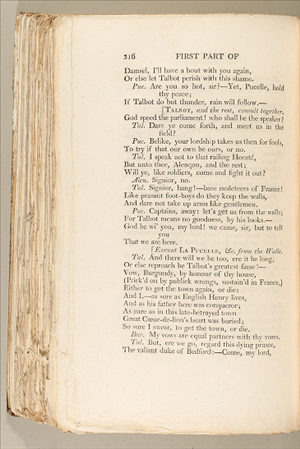 316 FIRST PART OF
Damsel, I'll have a bout with you again,
Or else let Talbot perish with this shame.
Puc. Are you so hot, sir?—Yet, Pucelle, hold
thy peace;
If Talbot do but thunder, rain will follow.—
[TALBOT, and the rest, consult together.
God speed the parliament! who shall be the speaker?
Tal. Dare ye come forth, and meet us in the
field?
Puc. Belike, your lordship takes us then for fools,
To try if that our own be ours, or no.
Tal. I speak not to that railing Hecaté,
But unto thee, Alençon, and the rest;
Will ye, like soldiers, come and fight it out?
Alen. Signior, no.
Tal. Signior, hang!—base muleteers of France!
Like peasant foot-boys do they keep the walls,
And dare not take up arms like gentlemen.
Puc. Captains, away: let's get us from the walls;
For Talbot means no goodness, by his looks.—
God be wi' you, my lord! we came, sir, but to tell
you
That we are here.
[Exeunt LA PUCELLE, &c. from the Walls.
Tal. And there will we be too, ere it be long,
Or else reproach be Talbot's greatest fame!—
Vow, Burgundy, by honour of thy house,
(Prick'd on by publick wrongs, sustain'd in France,)
Either to get the town again, or die:
And I,—as sure as English Henry lives,
And as his father here was conqueror;
As sure as in this late-betrayed town
Great Cœur-de-lion's heart was buried;
So sure I swear, to get the town, or die.
Bur. My vows are equal partners with thy vows.
Tal. But, ere we go, regard this dying prince,
The valiant duke of Bedford:—Come, my lord,